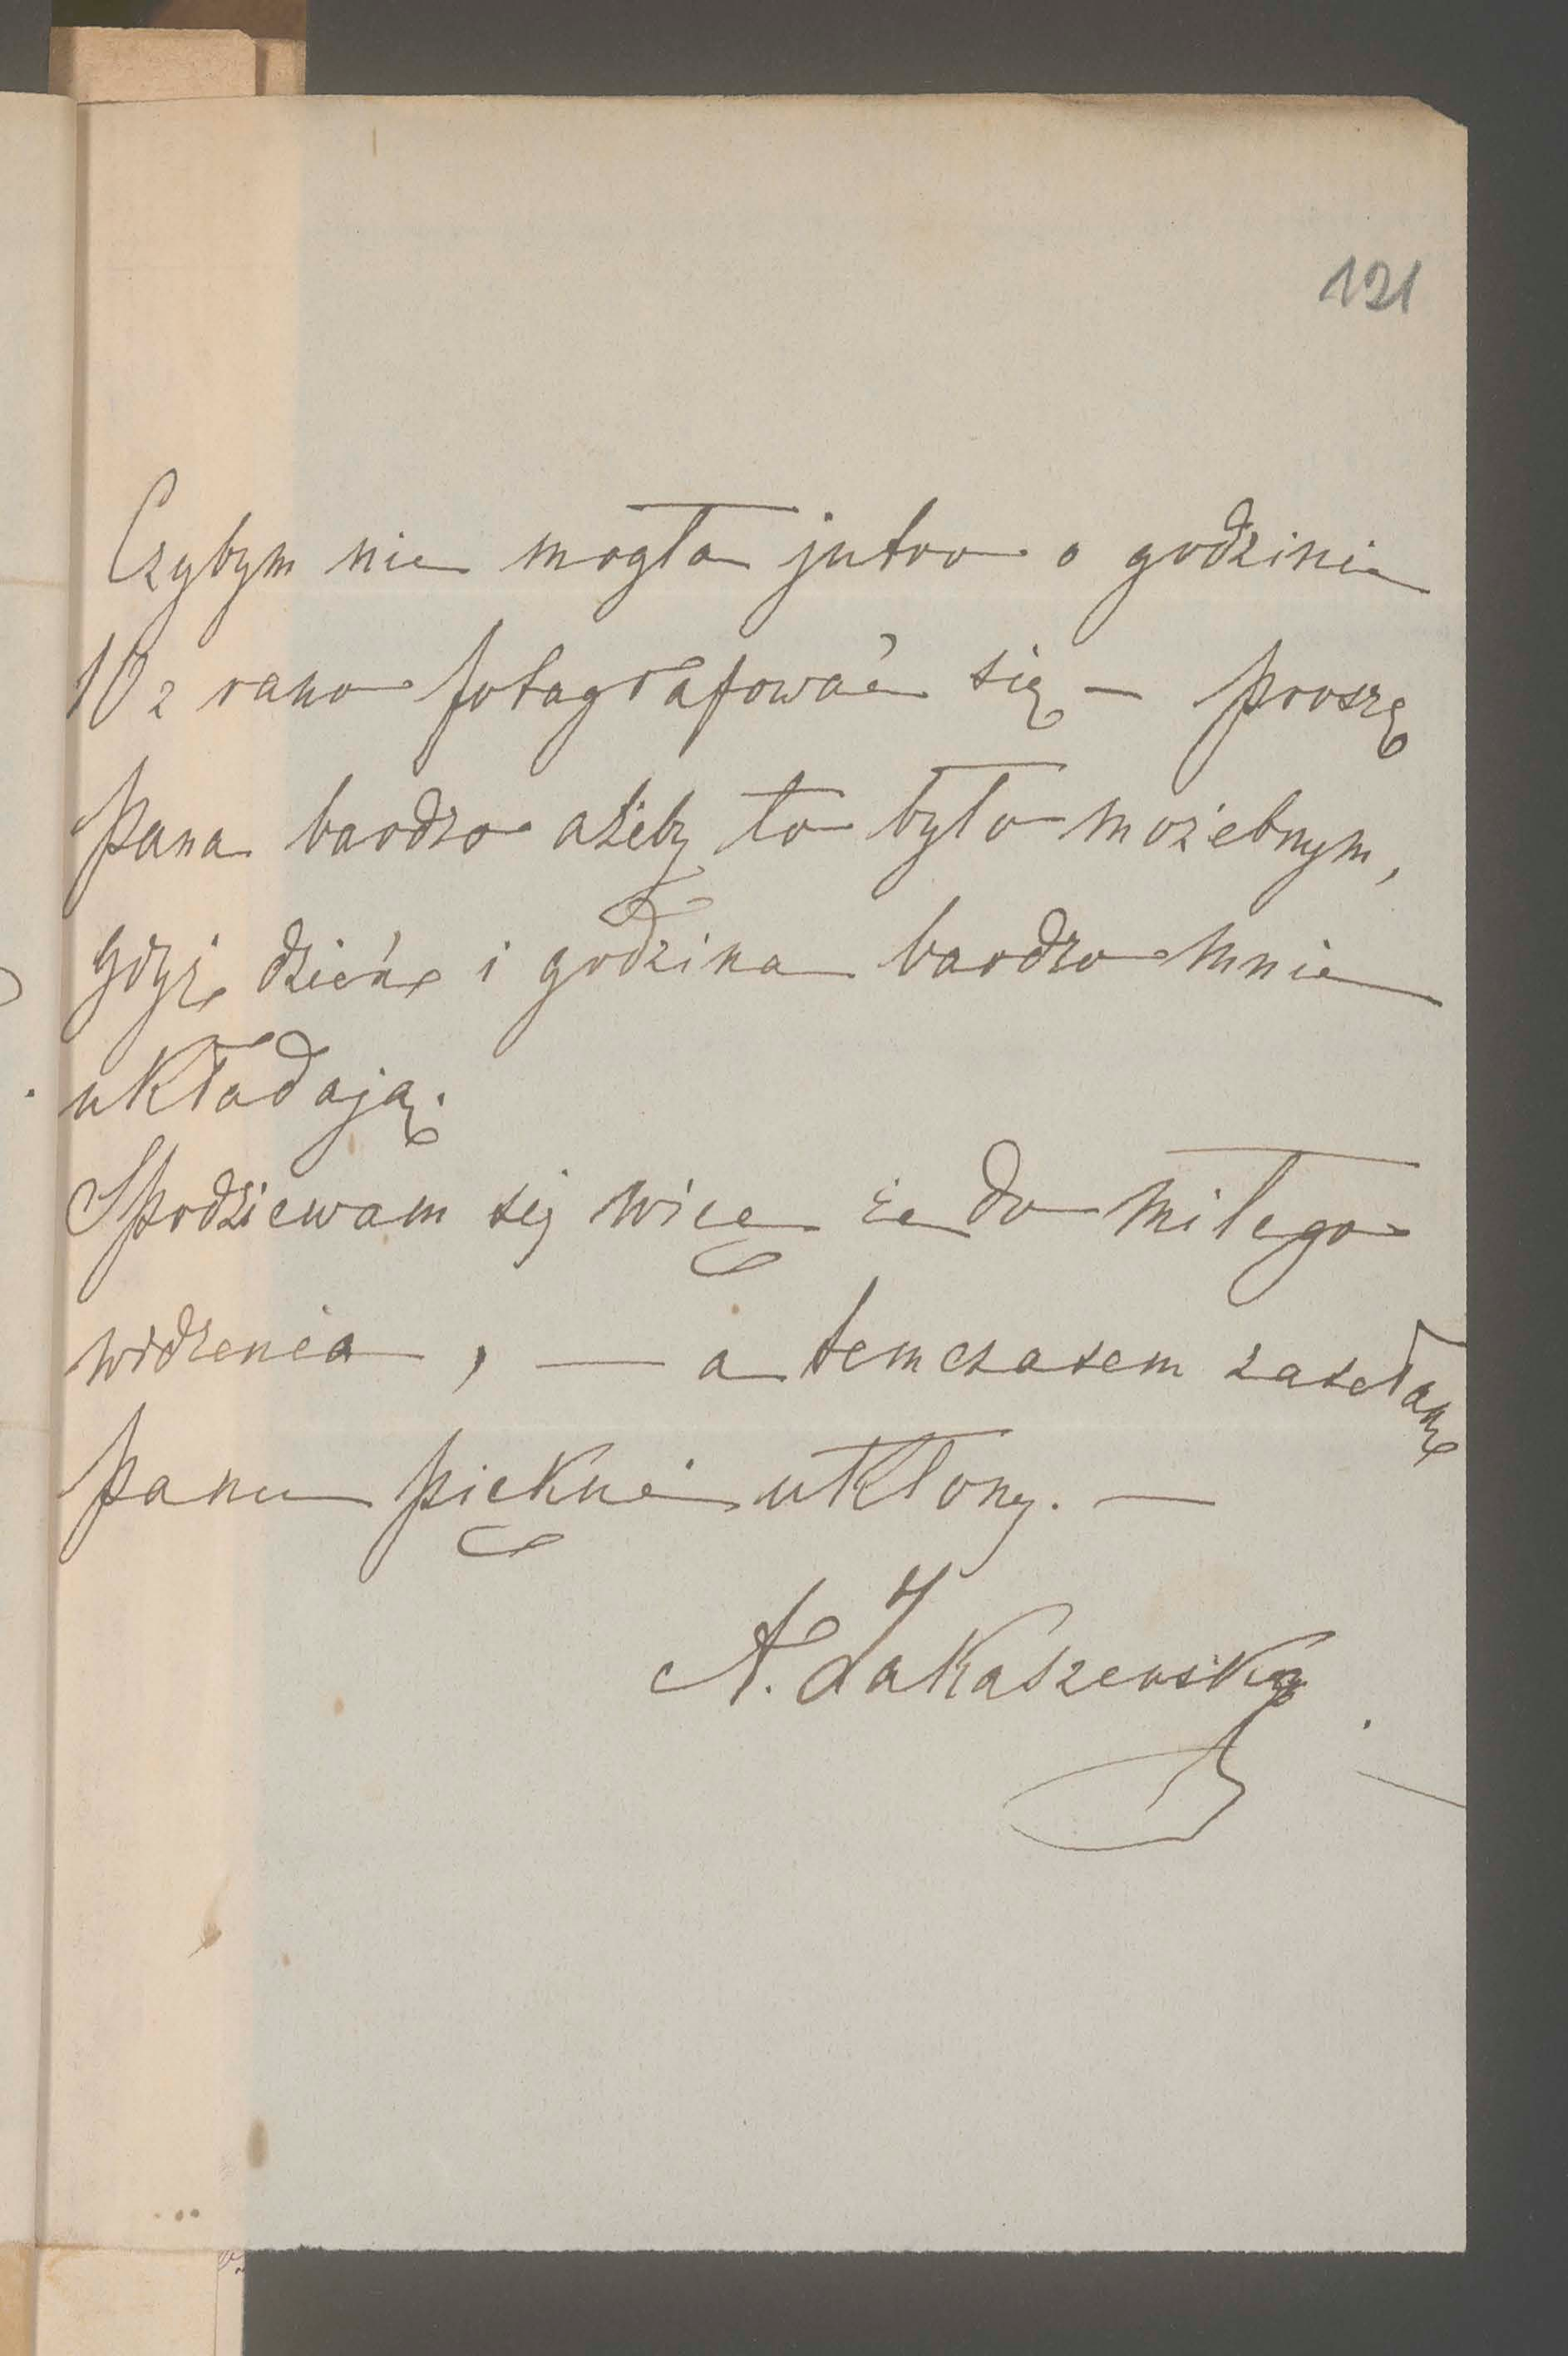 121
Czybym nie mogła jutro o godzinie
10 z rana fotagrafować się — proszę
pana bardzo ażeby to było możebnym,
gdyż dzień i godzina bardzo mnie
układają.
Spodziewam się więc że do miłego
widzenia, — a temczasem zasełam
panu piękne ukłony. —